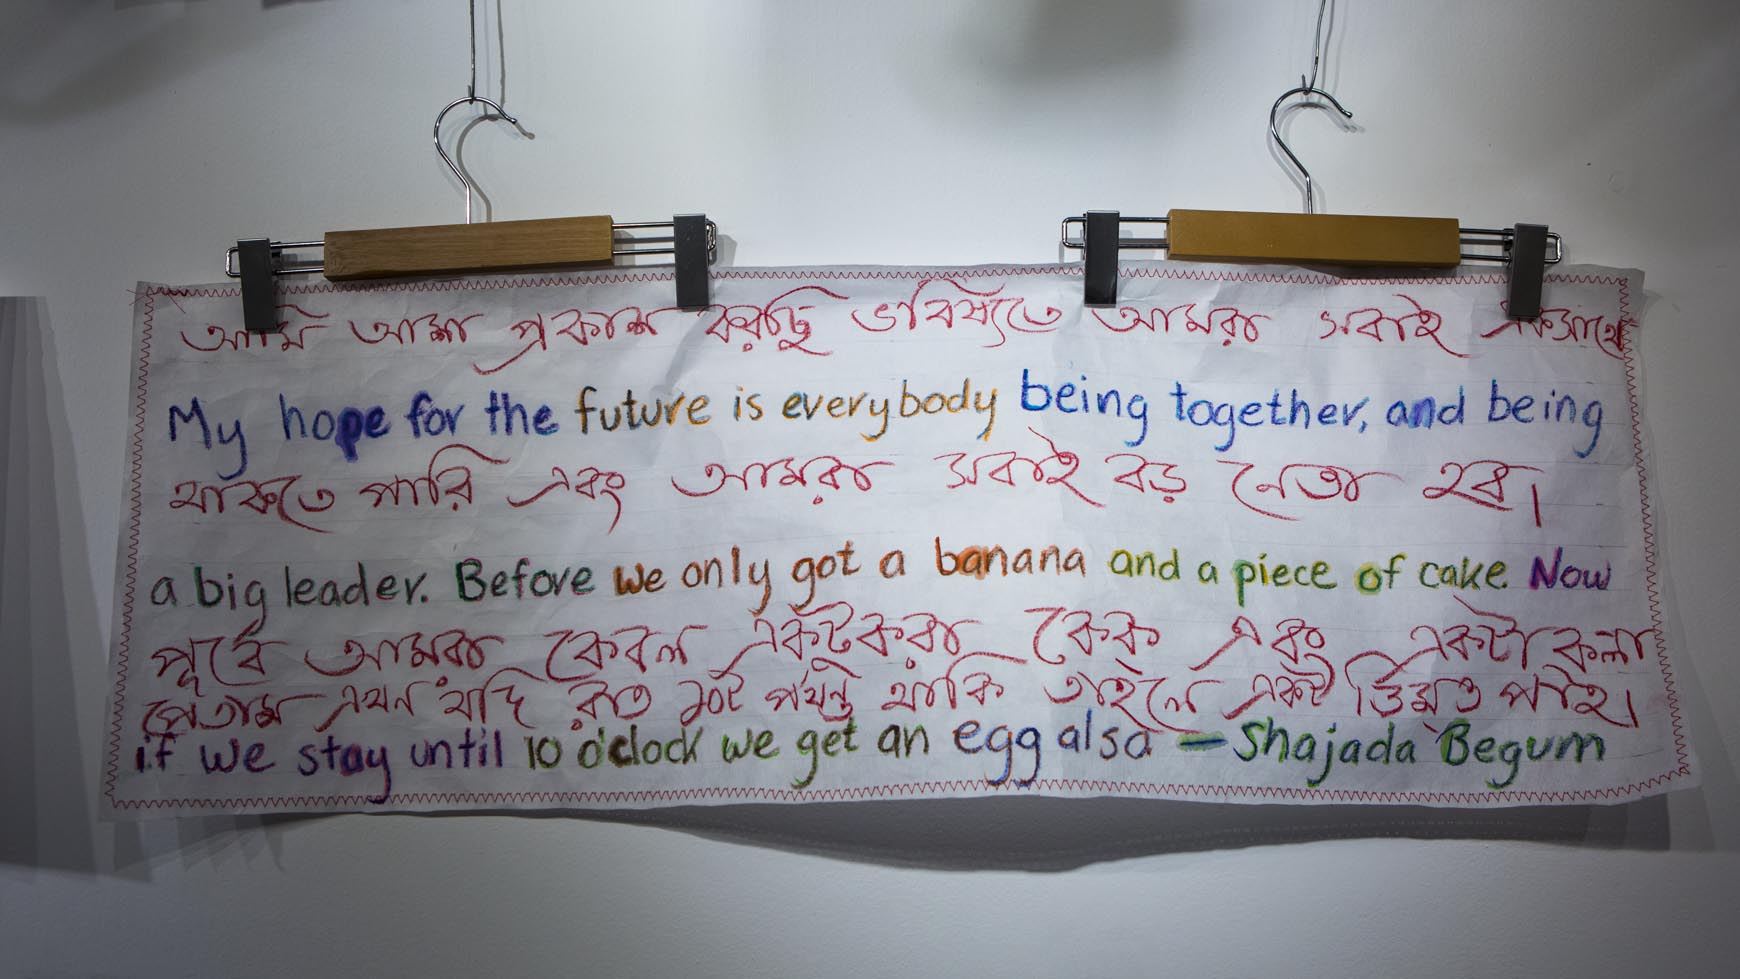 আমি আশা প্রকাশ করছি ভবিষ্যতে আমরা সবাই একসাথে
My hope for the future is everybody being together, and being
থাকতে পারি এবং আমরা সবাই বড় নেতা হব।
a big leader. Before we only got a banana and a piece of cake. Now
পূর্বে আমরা কেবল একটুকরা কেক এবং একটা কলা
পেতাম এখন যদি রাত ১০টা পর্যন্ত থাকি তাহলে একটা ডিমও পাই।
if we stay until 10 o'clock we get an egg also — Shajada Begum